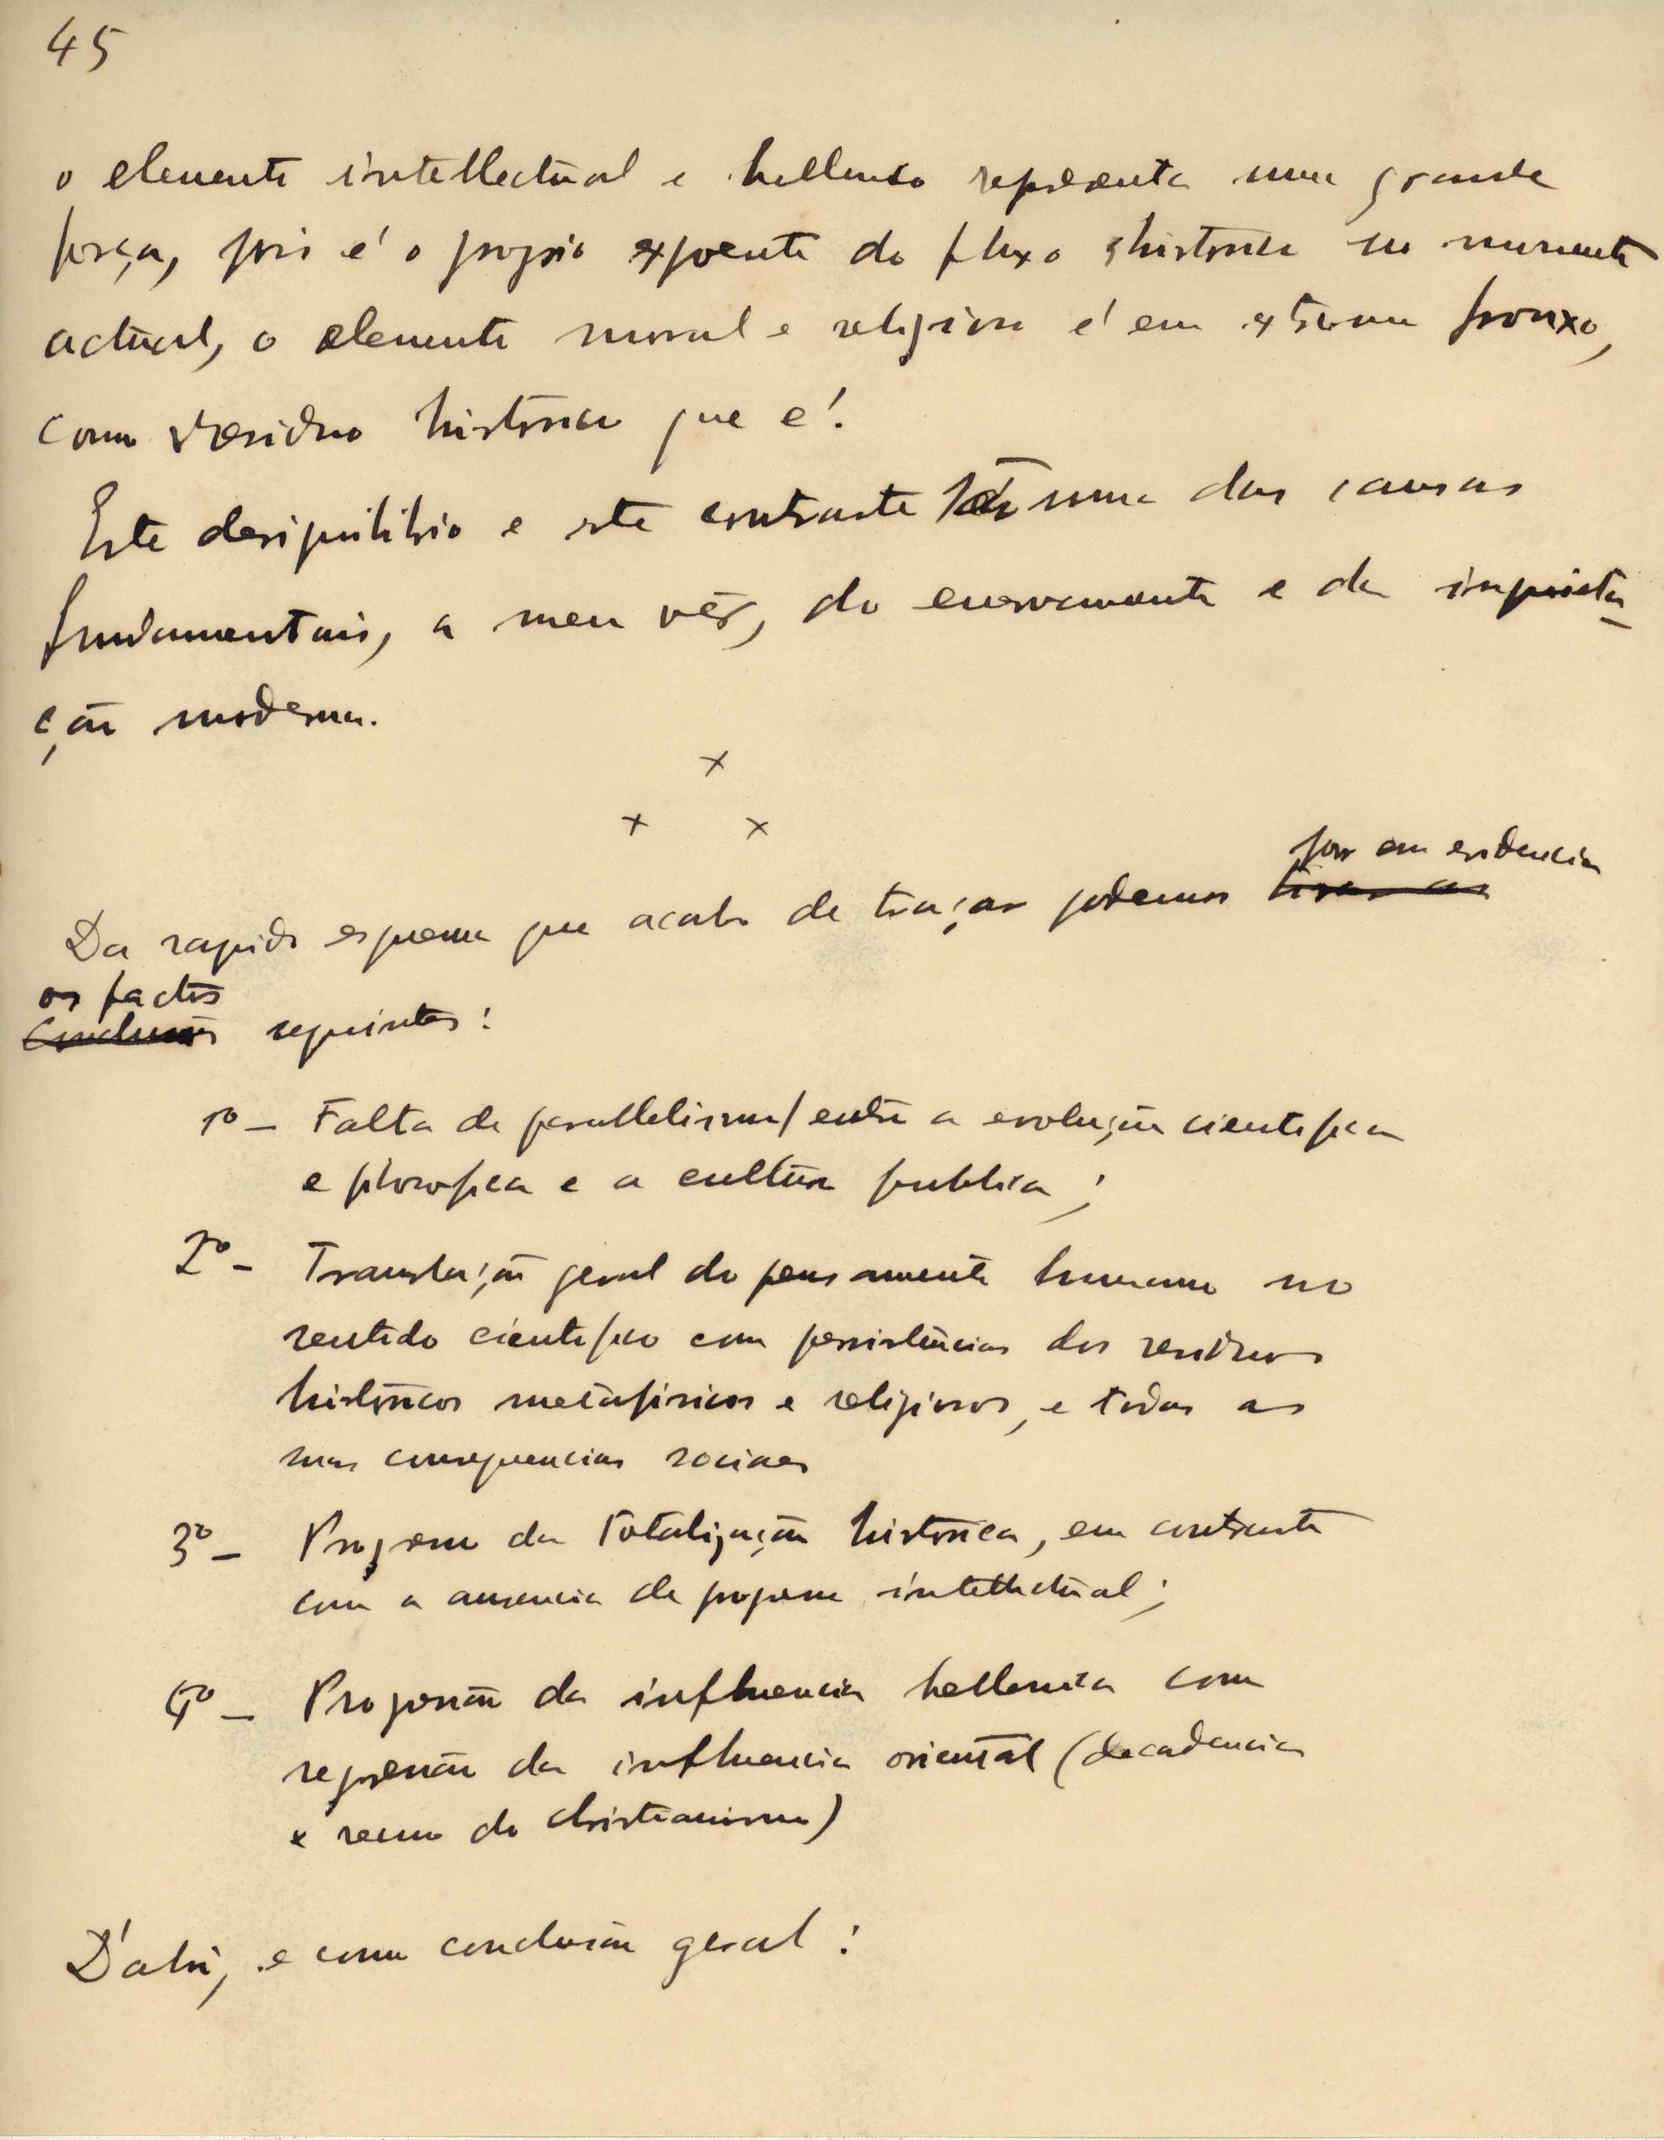 45
o elemento intellectual e hellenico representa uma grande
força, pois é o proprio expoente do fluxo historico no momento
actual, o elemento moral e religioso é em extremo frouxo,
como residuo historico que é.
Este desiquilibrio e este contraste são uma das causas
fundamentais, a meu vêr, do enervamento e da inquieta-
ção moderna.
x
x x
por em evidencia
Do rapido esquema que acabo de traçar podemos tirar as
os factos
Conclusões seguintes:
1º - Falta de parallelismo entre a evolução cientifica
e filosofica e a cultura publica;
2º - Translação geral do pensamento humano no
sentido cientifico com persistencias dos residuos
historicos metafisicos e religiosos, e todas as
suas consequencias sociaes
3º - Progresso da totalização historica, em contraste
com a ausencia de progresso intellectual;
4º - Progressão da influencia hellenica com
regressão da influencia oriental (decadencia
e recuo do christianismo)
D'ahi, e como conclusão geral: